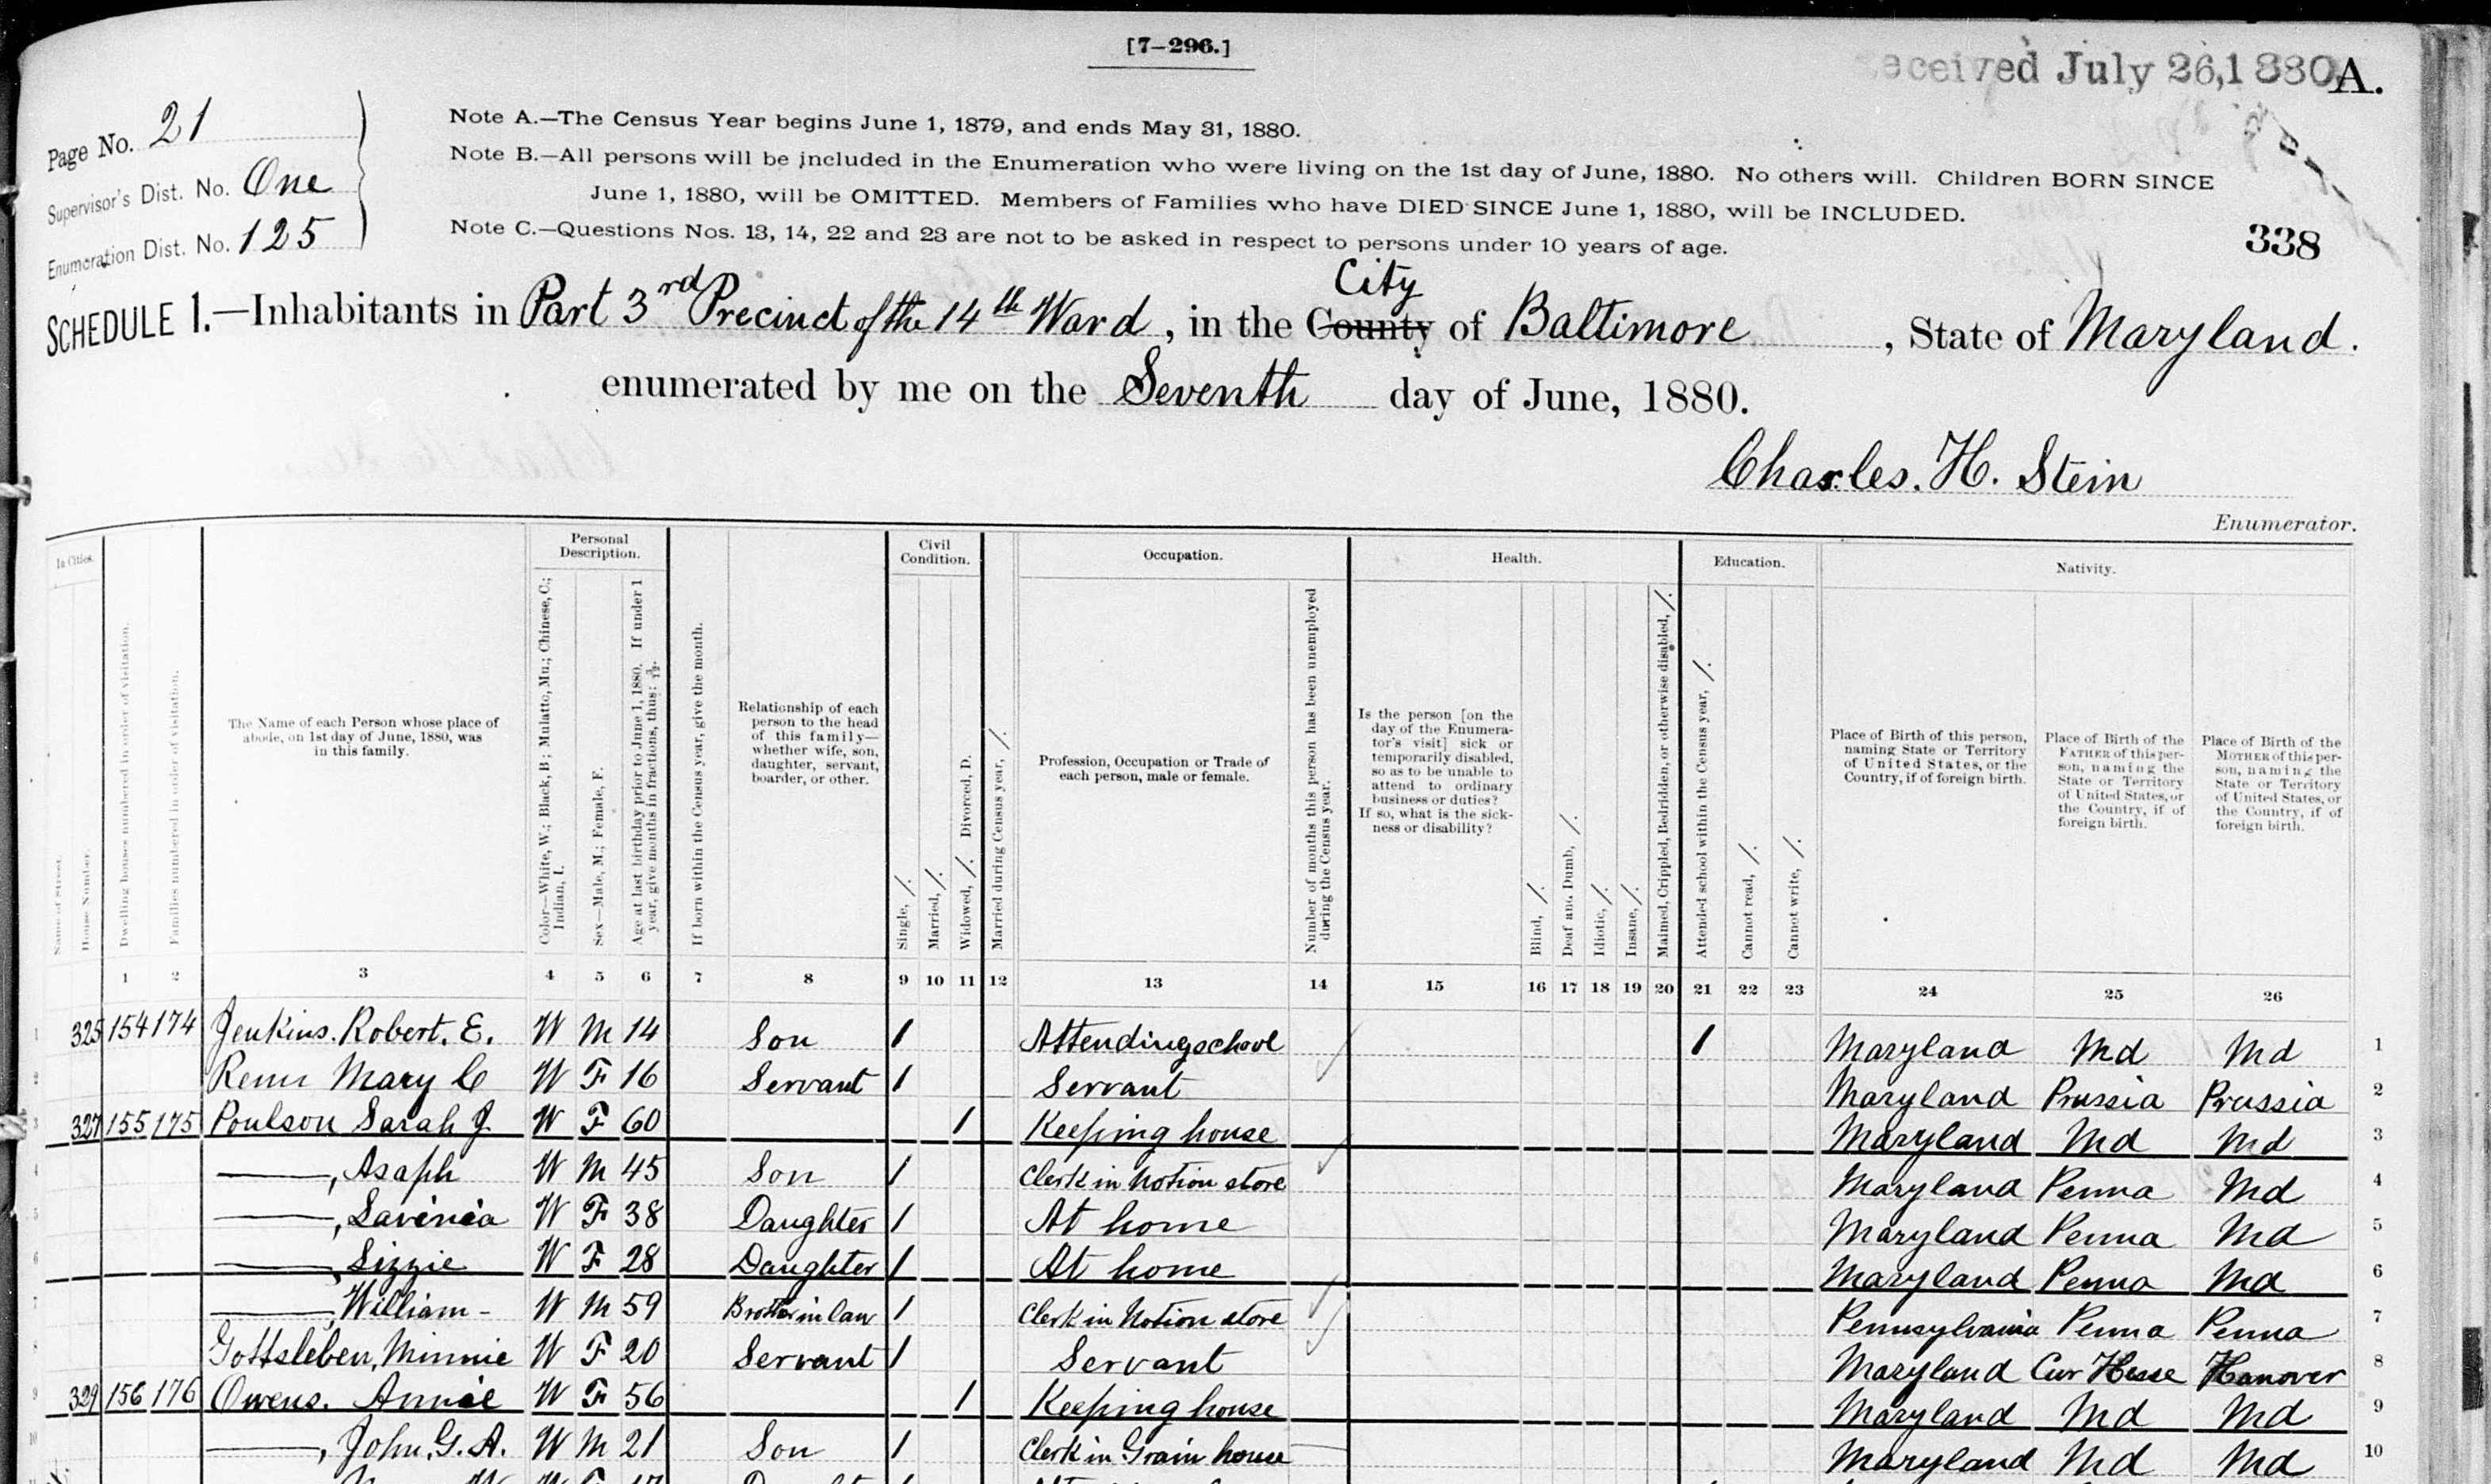 [7–296.]
eceived July 26, 1880 A.
Page No. 21
Supervisor's Dist. No. One
Enumeration Dist. No. 125
Note A.—The Census Year begins June 1, 1879, and ends May 31, 1880.
Note B.—All persons will be included in the Enumeration who were living on the 1st day of June, 1880. No others will. Children BORN SINCE
June 1, 1880, will be OMITTED. Members of Families who have DIED SINCE June 1, 1880, will be INCLUDED.
Note C.—Questions Nos. 13, 14, 22 and 23 are not to be asked in respect to persons under 10 years of age.
338
City
SCHEDULE 1.—Inhabitants in Part 3rd Precinct of the 14th Ward, in the County of Baltimore, State of Maryland.
enumerated by me on the Seventh day of June, 1880.
Charles. H. Stein
Enumerator.
In Cities. Personal Description. Civil Condition. Occupation. Health. Education. Nativity.
Name of Street.
House Number.
Dwelling houses numbered in order of visitation.
Families numbered in order of visitation.
The Name of each Person whose place of
abode, on 1st day of June, 1880, was
in this family.
Color—White, W.; Black, B.; Mulatto, Mu.; Chinese, C.;
Indian, I.
Sex—Male, M.; Female, F.
Age at last birthday prior to June 1, 1880. If under 1
year, give months in fractions, thus: 3/12.
If born within the Census year, give the month.
Relationship of each
person to the head
of this family—
whether wife, son,
daughter, servant,
boarder, or other.
Single, /.
Married, /.
Widowed, /. Divorced, D.
Married during Census year, /.
Profession, Occupation or Trade of
each person, male or female.
Number of months this person has been unemployed
during the Census year.
Is the person [on the
day of the Enumera-
tor's visit] sick or
temporarily disabled,
so as to be unable to
attend to ordinary
business or duties?
If so, what is the sick-
ness or disability?
Blind, /.
Deaf and Dumb, /.
Idiotic, /.
Insane, /.
Maimed, Crippled, Bedridden, or otherwise disabled, /.
Attended school within the Census year, /.
Cannot read, /.
Cannot write, /.
Place of Birth of this person,
naming State or Territory
of United States, or the
Country, if of foreign birth.
Place of Birth of the
FATHER of this per-
son, naming the
State or Territory
of United States, or
the Country, if of
foreign birth.
Place of Birth of the
MOTHER of this per-
son, naming the
State or Territory
of United States, or
the Country, if of
foreign birth.
1 2 3 4 5 6 7 8 9 10 11 12 13 14 15 16 17 18 19 20 21 22 23 24 25 26
1 325 154 174 Jenkins. Robert. E. W M 14 Son 1 Attending school 1 Maryland Md Md 1
2 Mary C W F 16 Servant 1 Servant Maryland Prussia Prussia 2
3 327 155 175 Poulson Sarah J W F 60 1 Keeping house Maryland Md Md 3
4 ——, Asaph W M 45 Son 1 Clerk in Notion store Maryland Penna Md 4
5 ——, Lavinia W F 38 Daughter 1 At home Maryland Penna Md 5
6 ——, Lizzie W F 28 Daughter 1 At home Maryland Penna Md 6
7 ——, William - W M 59 Brother in law 1 Clerk in Notion store Pennsylvania Penna Penna 7
8 Gottsleben, Minnie W F 20 Servant 1 Servant Maryland Cur Hesse Hanover 8
9 329 156 176 Owens. Annie W F 56 1 Keeping house Maryland Md Md 9
10 ——, John. G. A. W M 21 Son 1 Clerk in Grain house Maryland Md Md 10